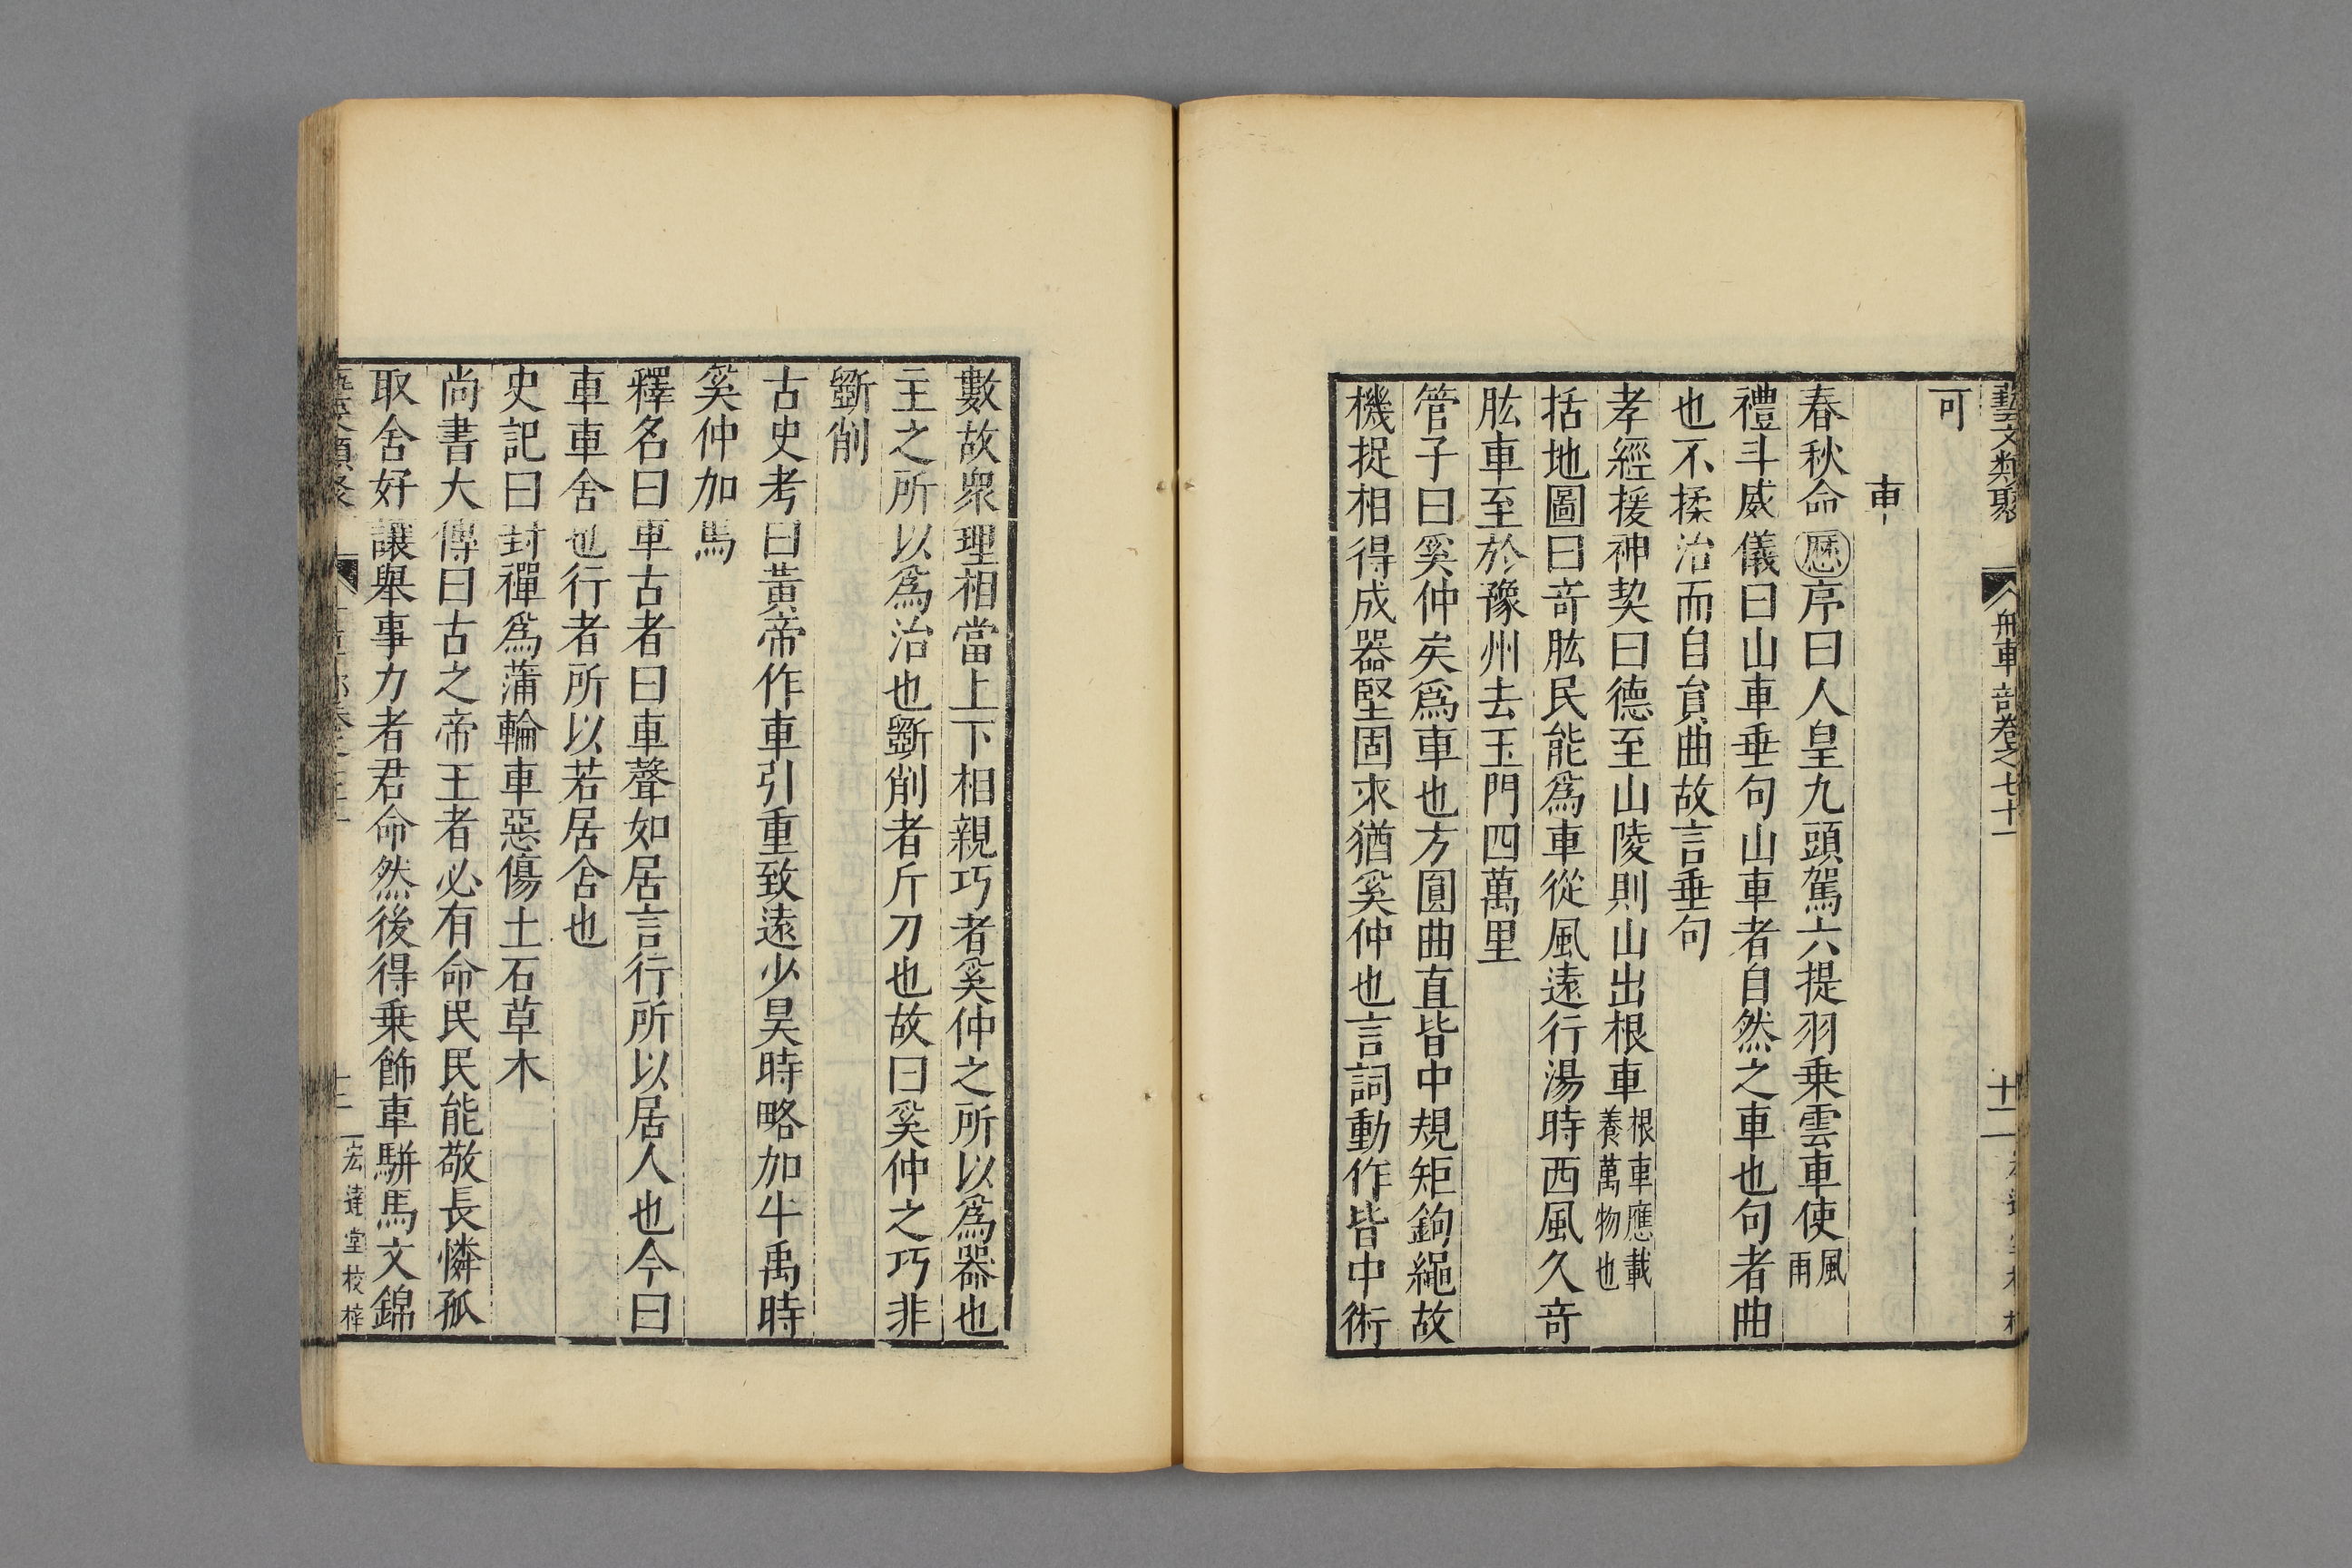 藝文類聚 舟車部卷之七十一 十二
可
車
春秋命歷序曰人皇九頭駕六提羽乗雲車使風雨
禮斗威儀曰山車垂句山車者自然之車也句者曲
也不揉治而自貟曲故言垂句
孝經援神契曰德至山陵則山出根車根車應載養萬物也
括地圖曰竒肱民能爲車從風遠行湯時西風久竒
肱車至於豫州去玉門四萬里
管子曰奚仲矣爲車也方圓曲直皆中規矩鉤繩故
機捉相得成器堅固求猶奚仲也言詞動作皆中術
數故衆理相當上下相親巧者奚仲之所以爲器也
主之所以爲治也斵削者斤刀也故曰奚仲之巧非
斵削
古史考曰黃帝作車引重致遠少昊時略加牛禹時
奚仲加馬
釋名曰車古者曰車聲如居言行所以居人也今曰
車車舍也行者所以若居舍也
史記曰封禪爲蒲輪車惡傷土石草木
尚書大傳曰古之帝王者必有命民民能敬長憐孤
取舍好讓舉事力者君命然後得乗飾車駢馬文錦
宏達堂校梓